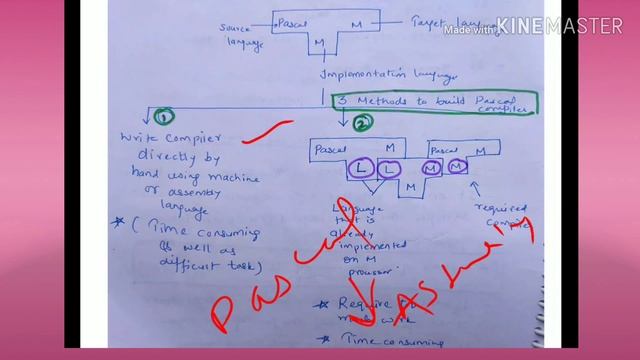 Source language
Pascal M
Target language
M
Made with KINEMASTER
Implementation language
3 Methods to build Pascal compiler
1
2
Write compiler
directly by
hand using machine
or assembly
language
* (Time consuming
as well as
difficult task)
Pascal M
Pascal M
L L M M
M
Language
that is
already
implemented
on M
processor
required
* Require
work
* Time consuming
Pascal